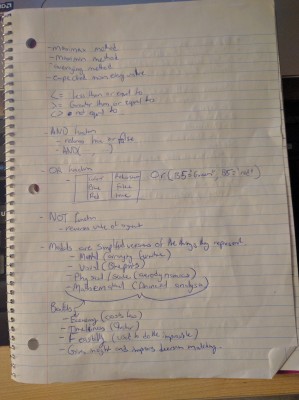 - minimax method
- maximax method
- averaging method
- expected monetary value
<= less than or equal to
>= Greater than or equal to
<> not equal to
- AND function
- returns true or false
- AND(        )
- OR function
OR(B5="Green", B5="red")
- NOT function
- reverses value of argument
- Models are simplified versions of the things they represent
- Mental (arranging furniture)
- Visual (Blueprints)
- Physical/Scale
- Mathematical (Demand analysis)
Benefits
- Economy (costs less)
- Timeliness
- Feasibility (used to do the impossible)
- Gives insight and improves decision making